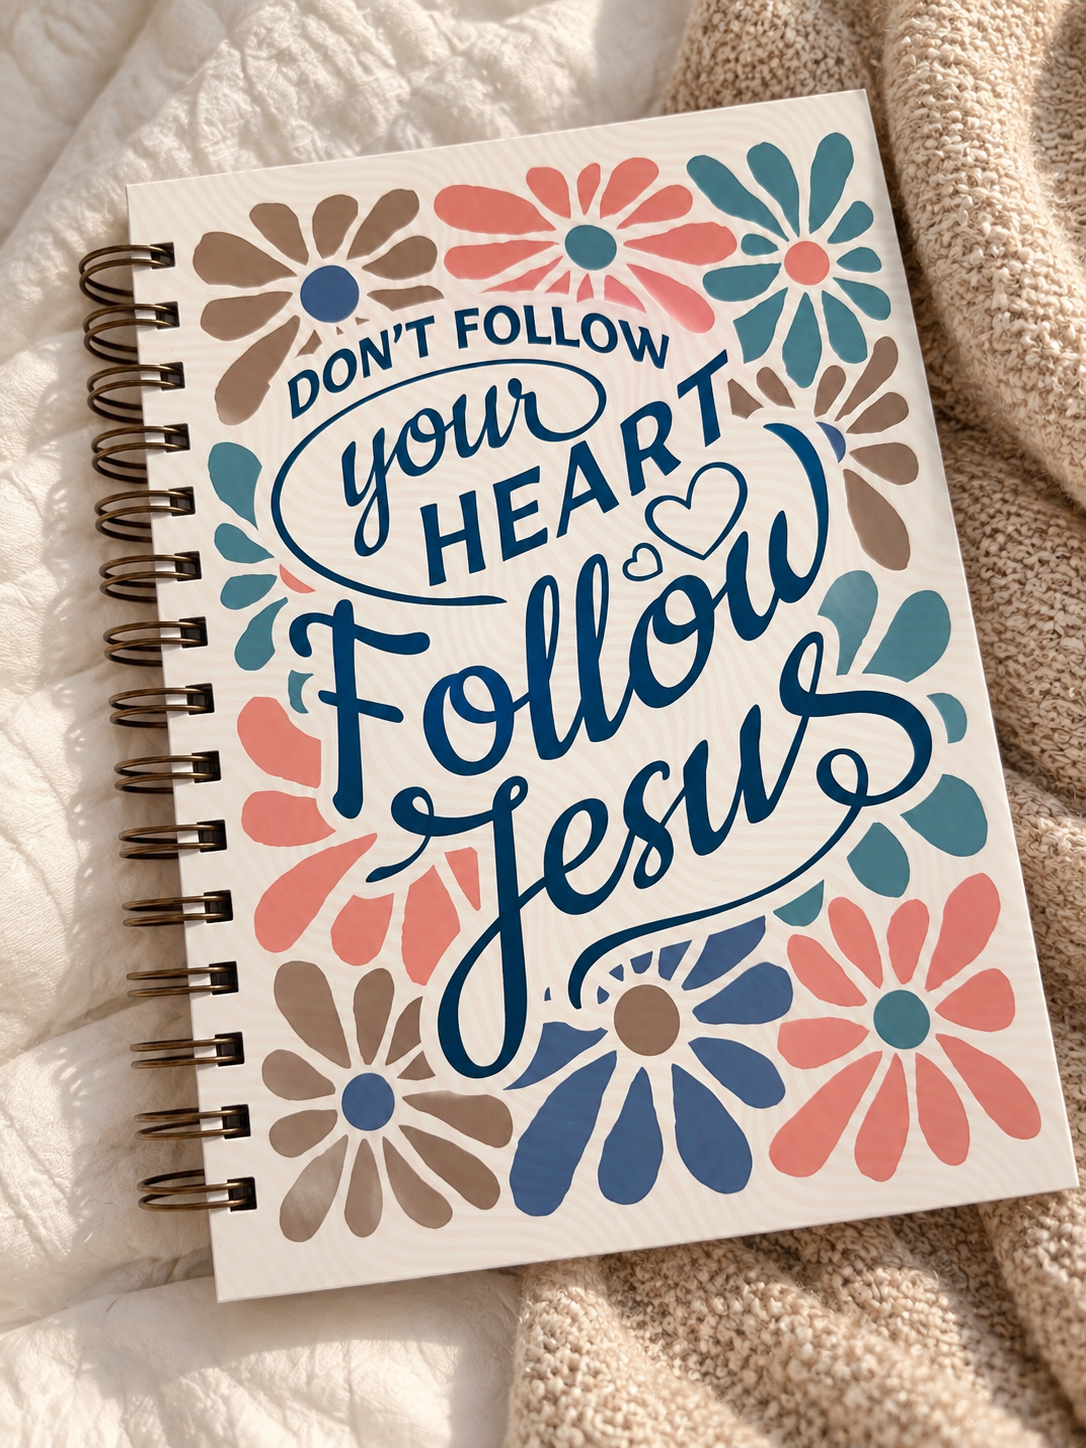 DON'T FOLLOW
your
HEART
Follow
Jesus